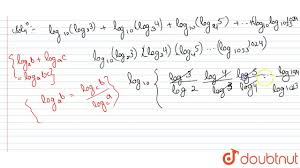 Solⁿ - log₁₀(log₂3) + log₁₀(log₃4) + log₁₀(log₄5) + ... + log₁₀(log₁₀₂₃1024)
log₁₀ (log₂3)(log₃4)(log₄5) ... (log₁₀₂₃1024)
{logₐb + logₐc = logₐbc}
log₁₀ { log 3 / log 2 · log 4 / log 3 · log 5 / log 4 ...
{logₐb = log_c b / log_c a}
doubtnut